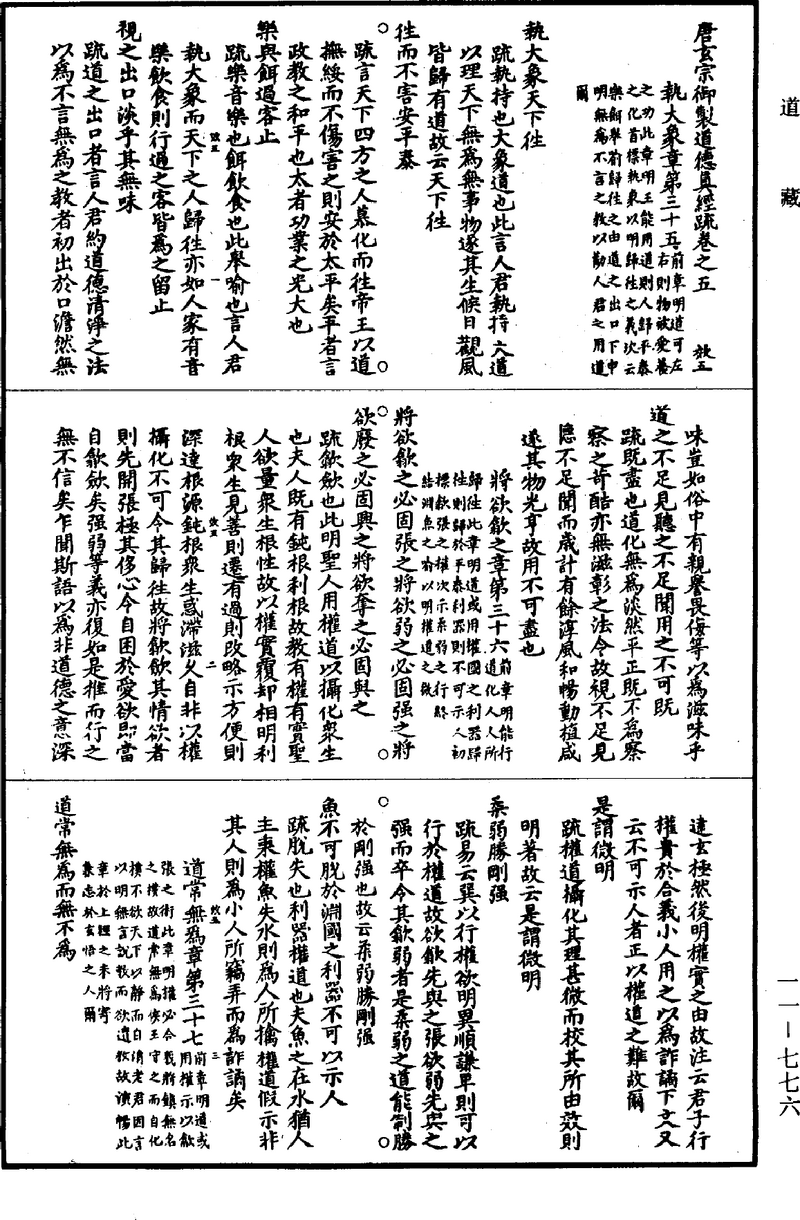 道藏
唐玄宗御製道德真經疏卷之五 效五
執大象章第三十五前章明道可左
右則物被愛養
之功此章明王能用道則人歸平泰
之化首標執象以明歸往之義次云
樂餌舉前歸往之由道之出口下申
明無為不言之教以勸人君之用道
爾
執大象天下往
疏執持也大象道也此言人君執持大道
以理天下無為無事物遂其生候日觀風
皆歸有道故云天下往
往而不害安平泰
疏言天下四方之人慕化而往帝王以道
撫綏而不傷害之則安於太平矣平者言
政教之和平也太者功業之光大也
樂與餌過客止
疏樂音樂也餌飲食也此舉喻也言人君
執大象而天下之人歸往亦如人家有音
樂飲食則行過之客皆為之留止
視之出口淡乎其無味
疏道之出口者言人君約道德清淨之法
以為不言無為之教者初出於口澹然無
效五
一
味豈如俗中有親譽畏侮等以為滋味乎
道之不足見聽之不足聞用之不可既
疏既盡也道化無為淡然平正既不為察
察之苛酷亦無滋彰之法令故視不足見
聽不足聞而歲計有餘淳風和暢動植咸
遂其物光亨故用不可盡也
將欲歙之章第三十六前章明能行
道化人人所
歸往此章明道或用權國之利器歸
往則歸於平泰利器則不可示人初
標歙張之權次示柔弱之行終
結淵魚之喻以明權道之微
將欲歙之必固張之將欲弱之必固强之將
欲廢之必固興之將欲奪之必固與之
疏歙斂也此明聖人用權道以攝化衆生
也夫人既有鈍根利根故教有權有實聖
人欲量衆生根性故以權實覆却相明利
根衆生見善則遷有過則改略示方便則
深達根源鈍根衆生惑滯滋久自非以權
攝化不可令其歸往故將欲歙其情欲者
則先開張極其侈心令自困於愛欲即當
自歙斂矣强弱等義亦復如是推而行之
無不信矣乍聞斯語以為非道德之意深
效五
二
達玄極然後明權實之由故注云君子行
權貴於合義小人用之以為詐譎下文又
云不可示人者正以權道之難故爾
是謂微明
疏權道攝化其理甚微而校其所由效則
明著故云是謂微明
柔弱勝剛强
疏易云巽以行權欲明巽順謙卑則可以
行於權道故欲歙先與之張欲弱先與之
强而卒令其歙弱者是柔弱之道能制勝
於剛强也故云柔弱勝剛强
魚不可脫於淵國之利器不可以示人
疏脫失也利器權道也夫魚之在水猶人
主乘權魚失水則為人所擒權道假示非
其人則為小人所竊弄而為詐譎矣
道常無為章第三十七前章明道或
用權示以歙
張之術此章明權必合義將鎮無名
之樸故道常無為侯王守之而自化
樸不欲天下以靜而自清老君因言
以明無言說教而欲遺教故演暢此
章於上經之末將寄
兼忘於玄悟之人爾
道常無為而無不為
效五
三
一一-七七六